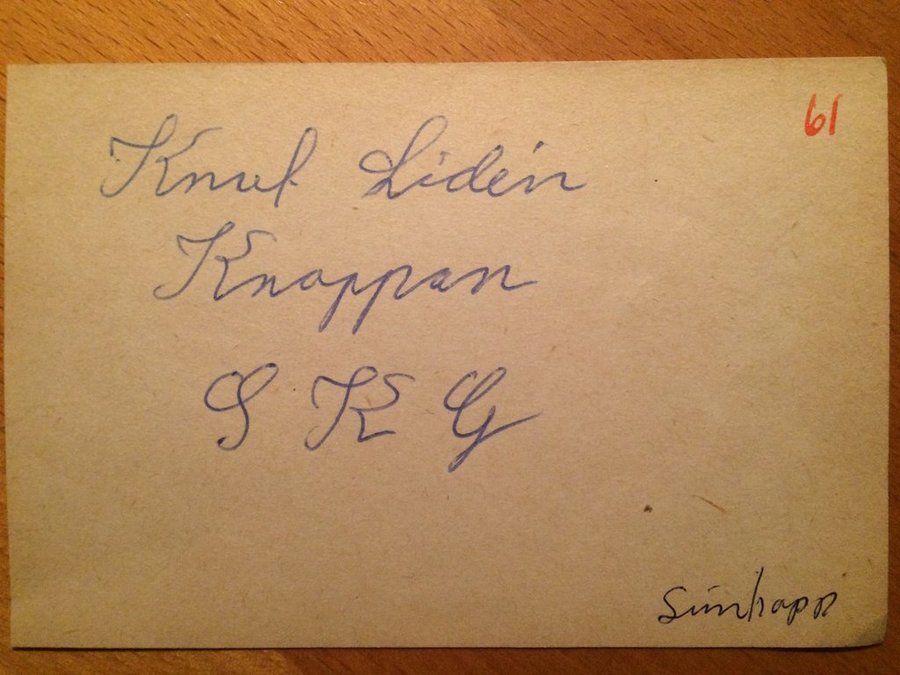 61
Knut Lidén
Knoppan
S K G
Simhopp